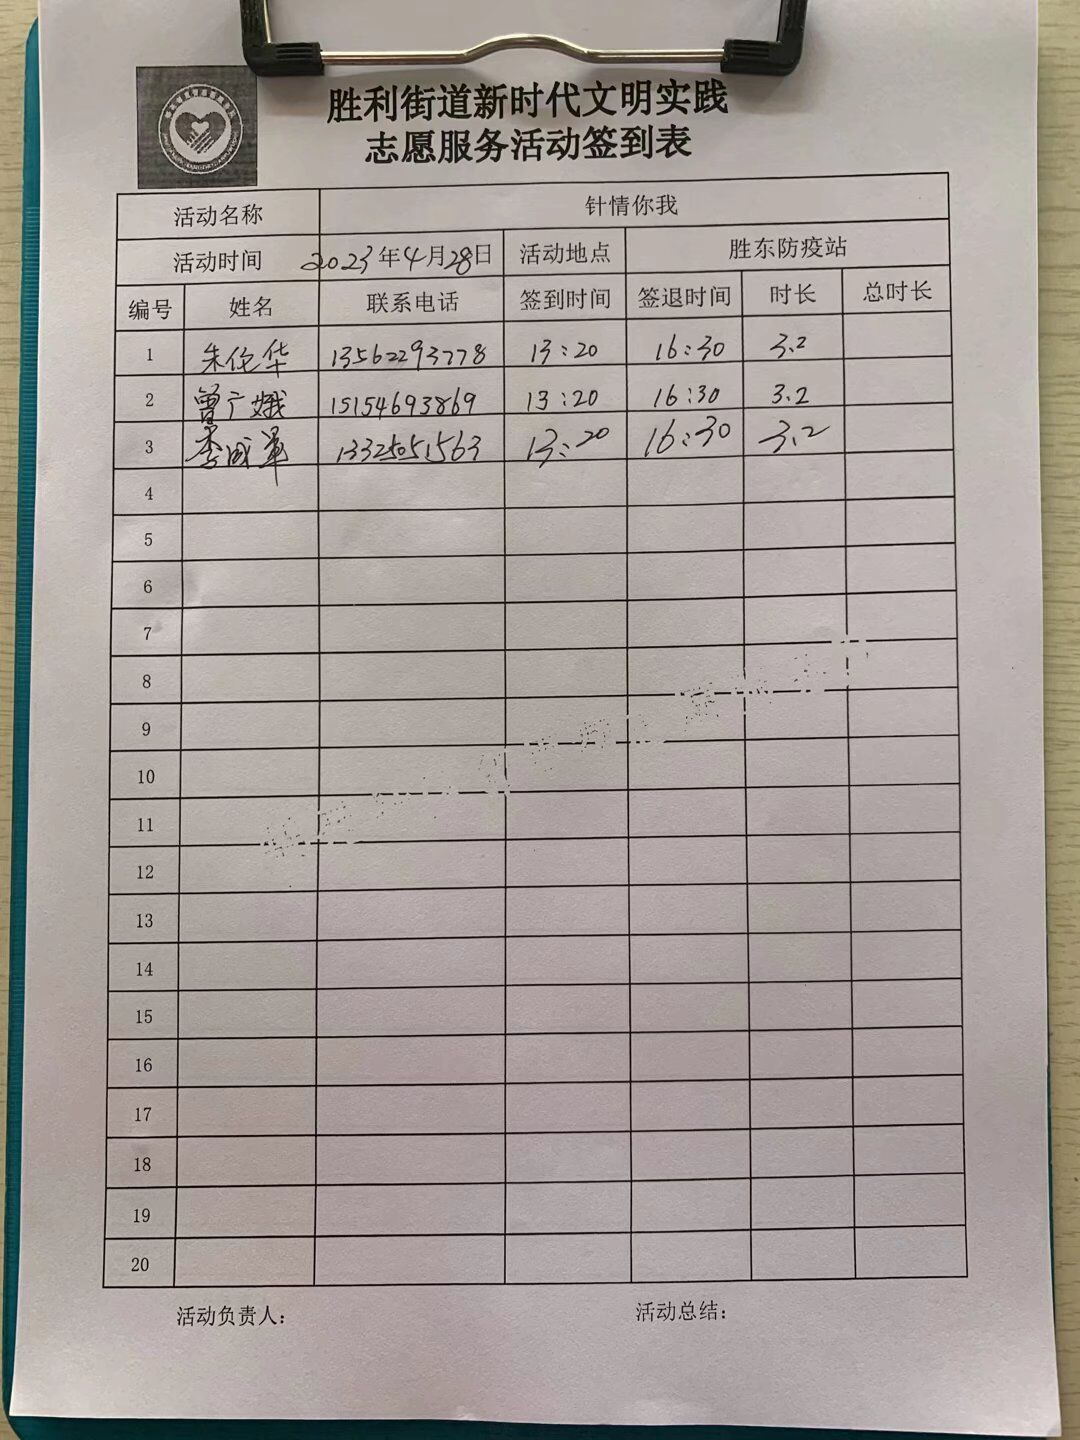 胜利街道新时代文明实践
志愿服务活动签到表
活动名称 针情你我
活动时间 2023年4月28日 活动地点 胜东防疫站
编号 姓名 联系电话 签到时间 签退时间 时长 总时长
1 朱伦华 13562293778 13:20 16:30 3.2
2 曾广娥 15154693869 13:20 16:30 3.2
3 李成军 13325051563 13:20 16:30 3.2
4
5
6
7
8
9
10
11
12
13
14
15
16
17
18
19
20
活动负责人: 活动总结: